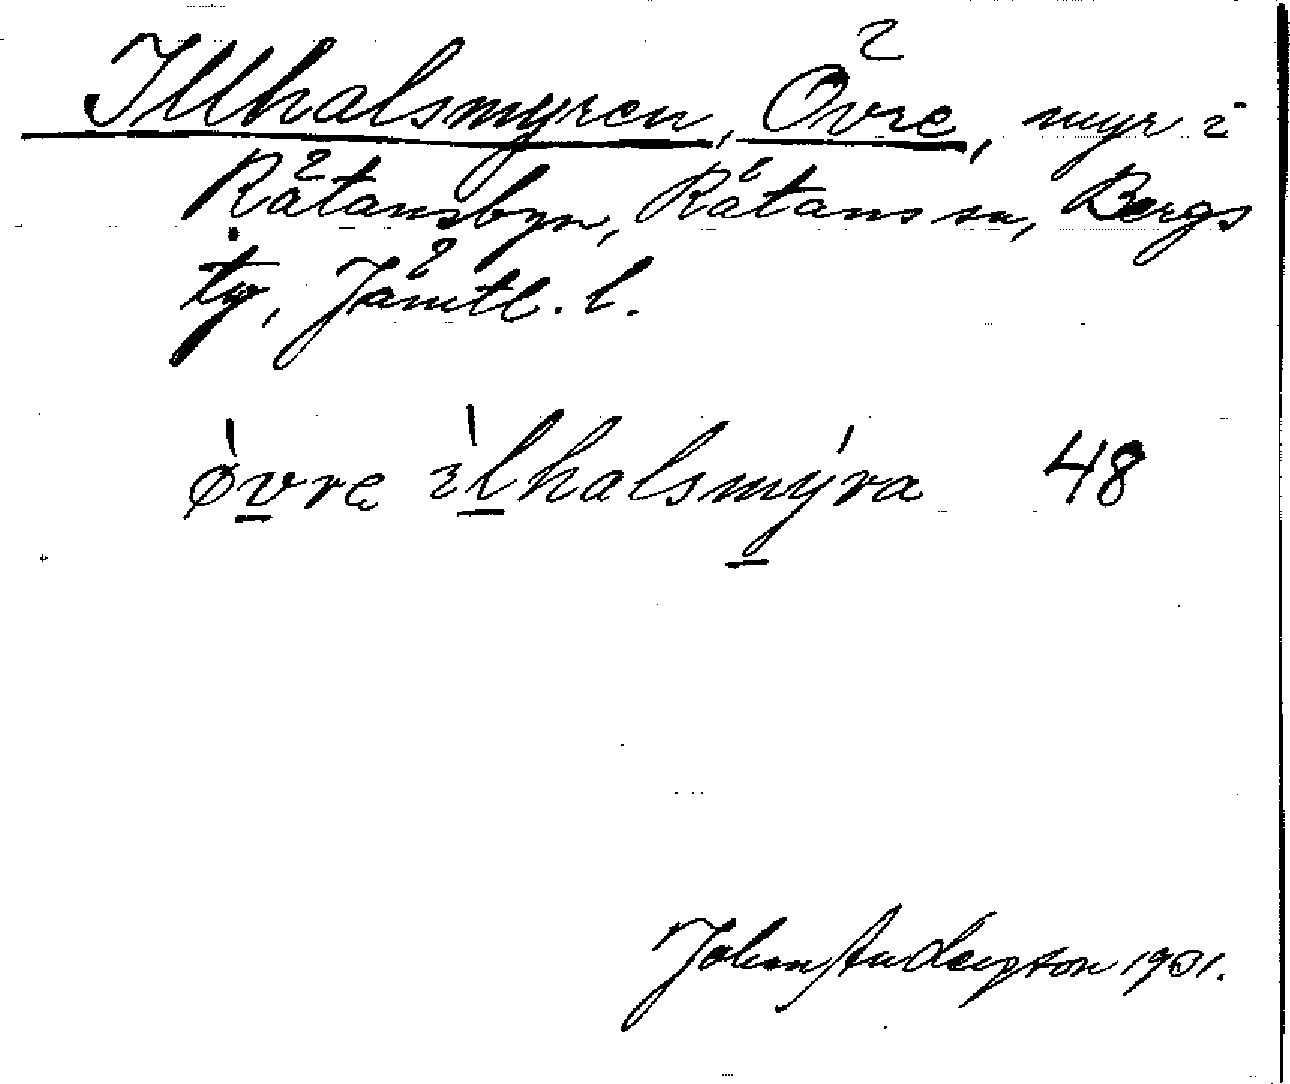 Illhalsmyren, Övre, myr i
Rätansbyn, Rätans sn, Bergs
tg, Jämtl. l.
øvre ìlhalsmýra 48
John Anderzton 1901.